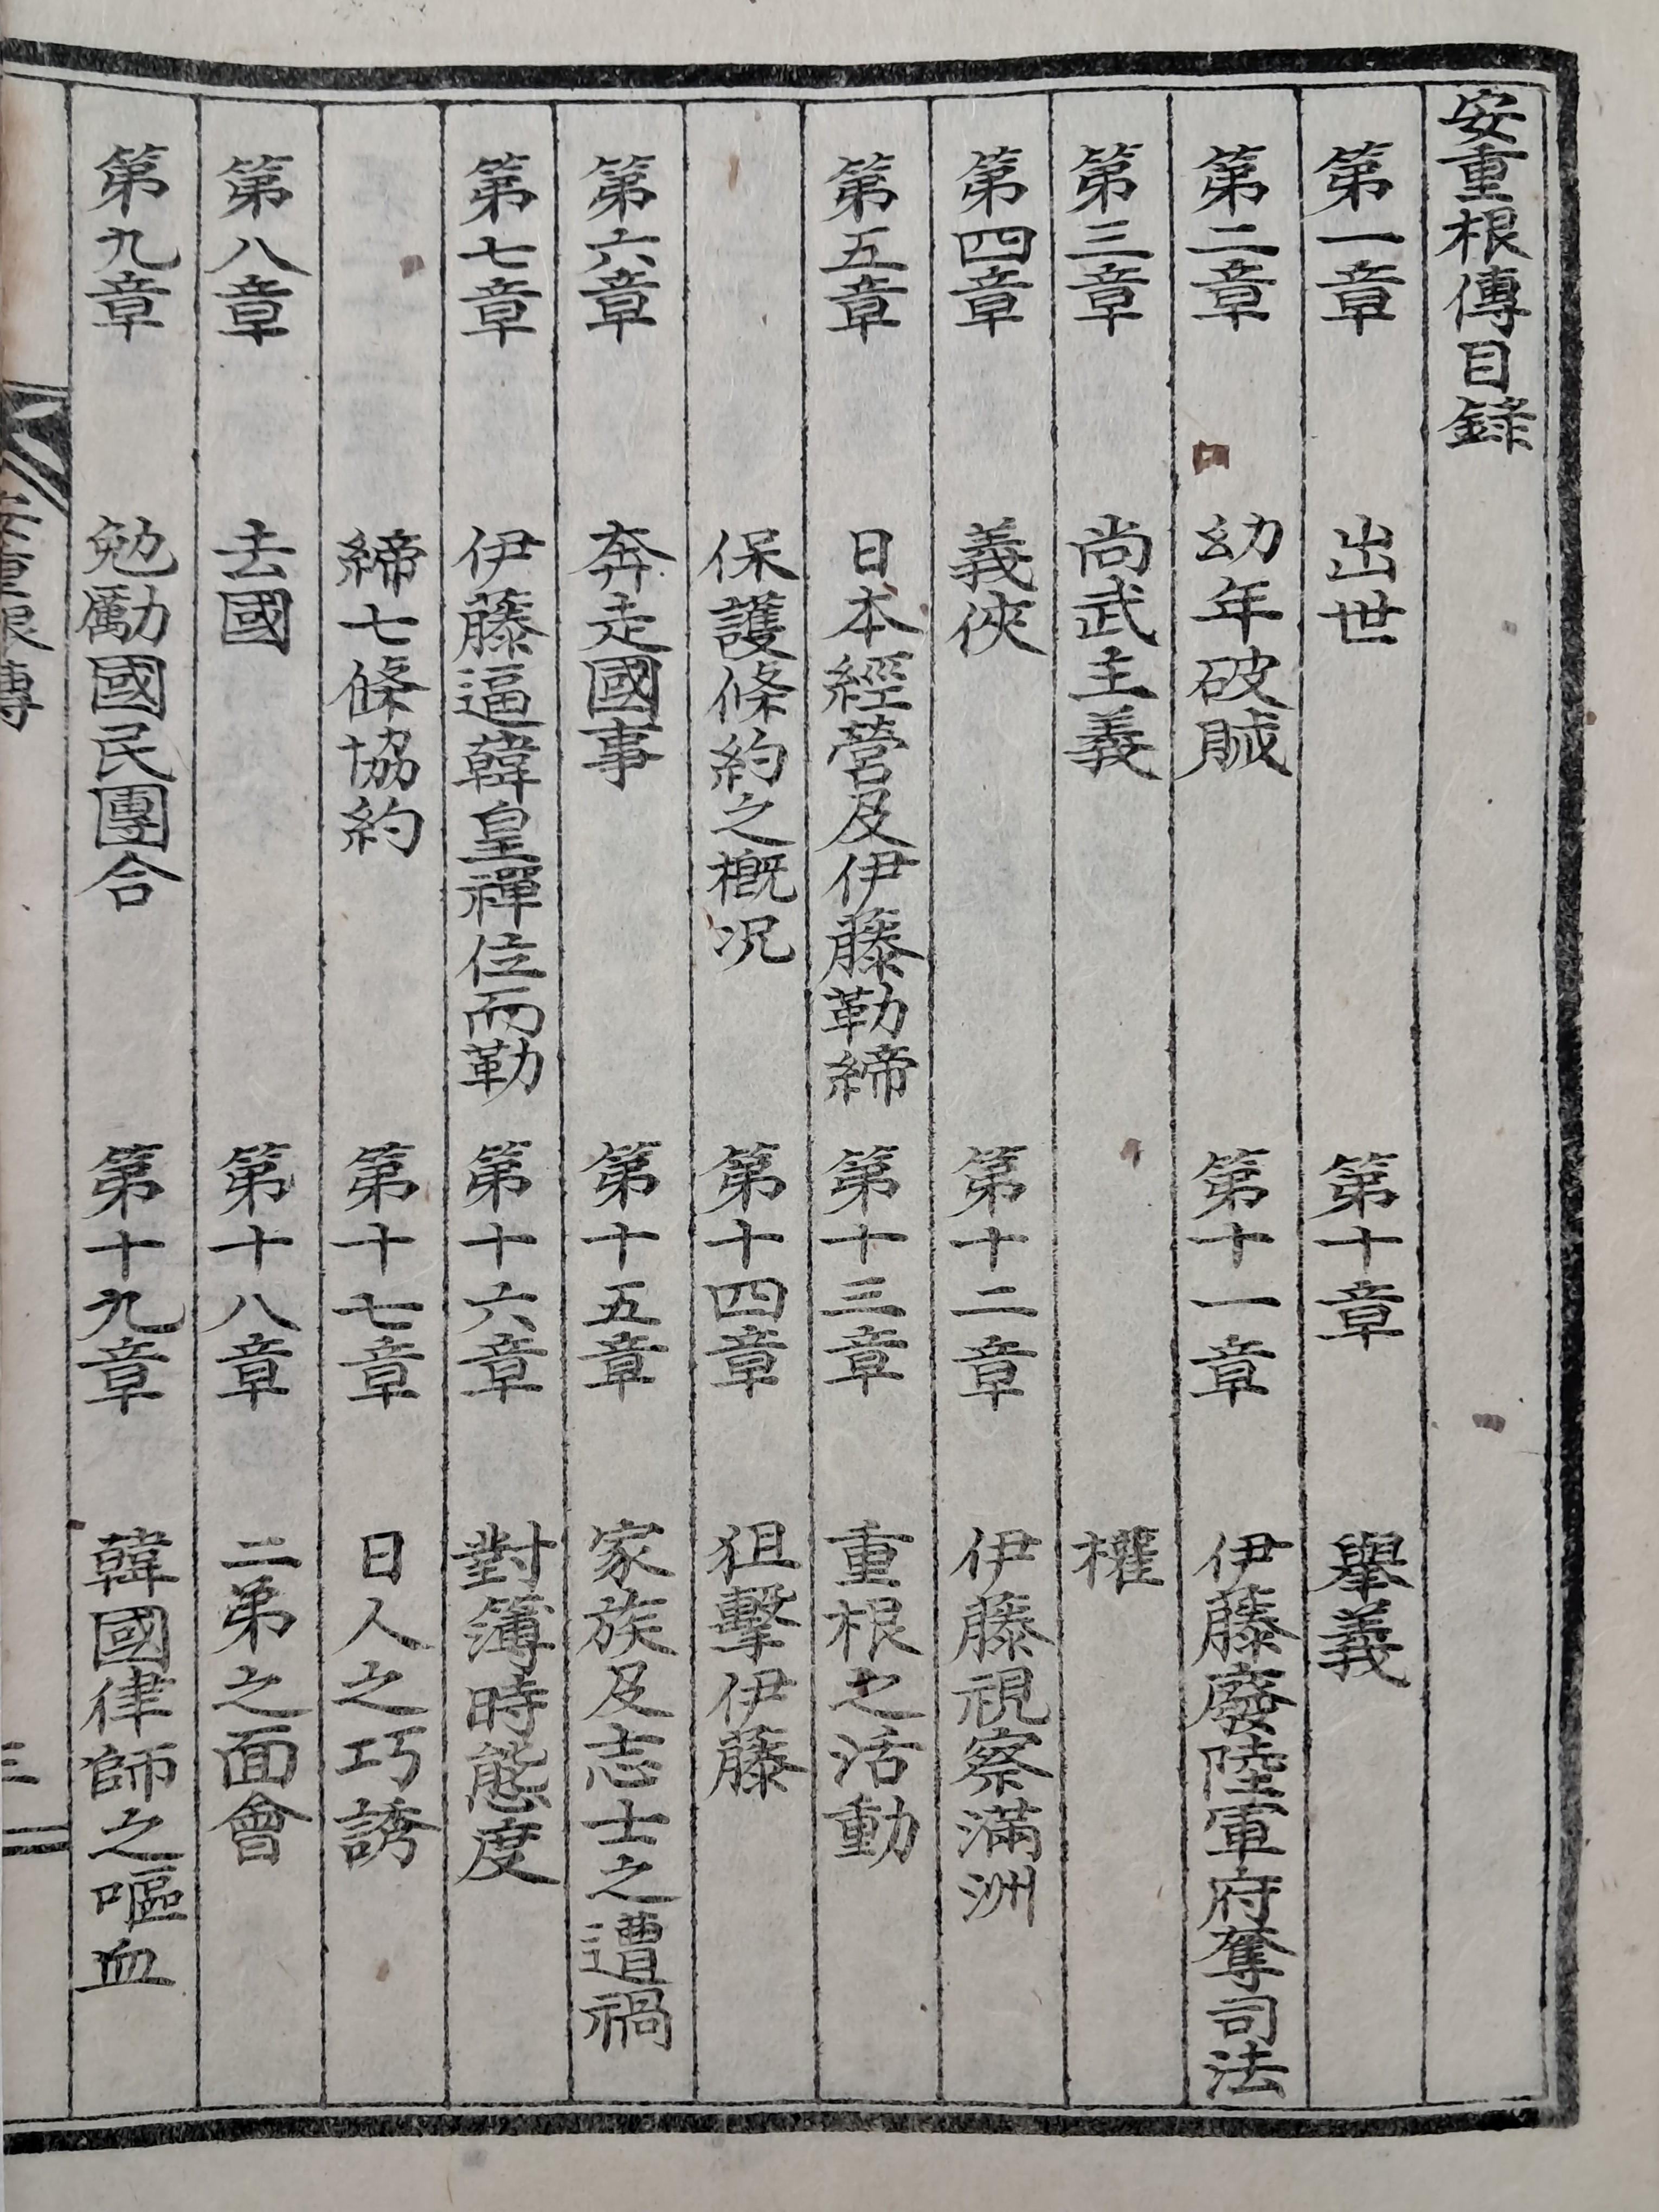 安重根傳目錄
第一章 出世
第二章 幼年破賊
第三章 尚武主義
第四章 義俠
第五章 日本經營及伊藤勒締
保護條約之概况
第六章 奔走國事
第七章 伊藤逼韓皇禪位而勒
締七條協約
第八章 去國
第九章 勉勵國民團合
第十章 舉義
第十一章 伊藤廢陸軍府奪司法
權
第十二章 伊藤視察滿洲
第十三章 重根之活動
第十四章 狙擊伊藤
第十五章 家族及志士之遭禍
第十六章 對簿時態度
第十七章 日人之巧誘
第十八章 二弟之面會
第十九章 韓國律師之嘔血
安重根傳
三